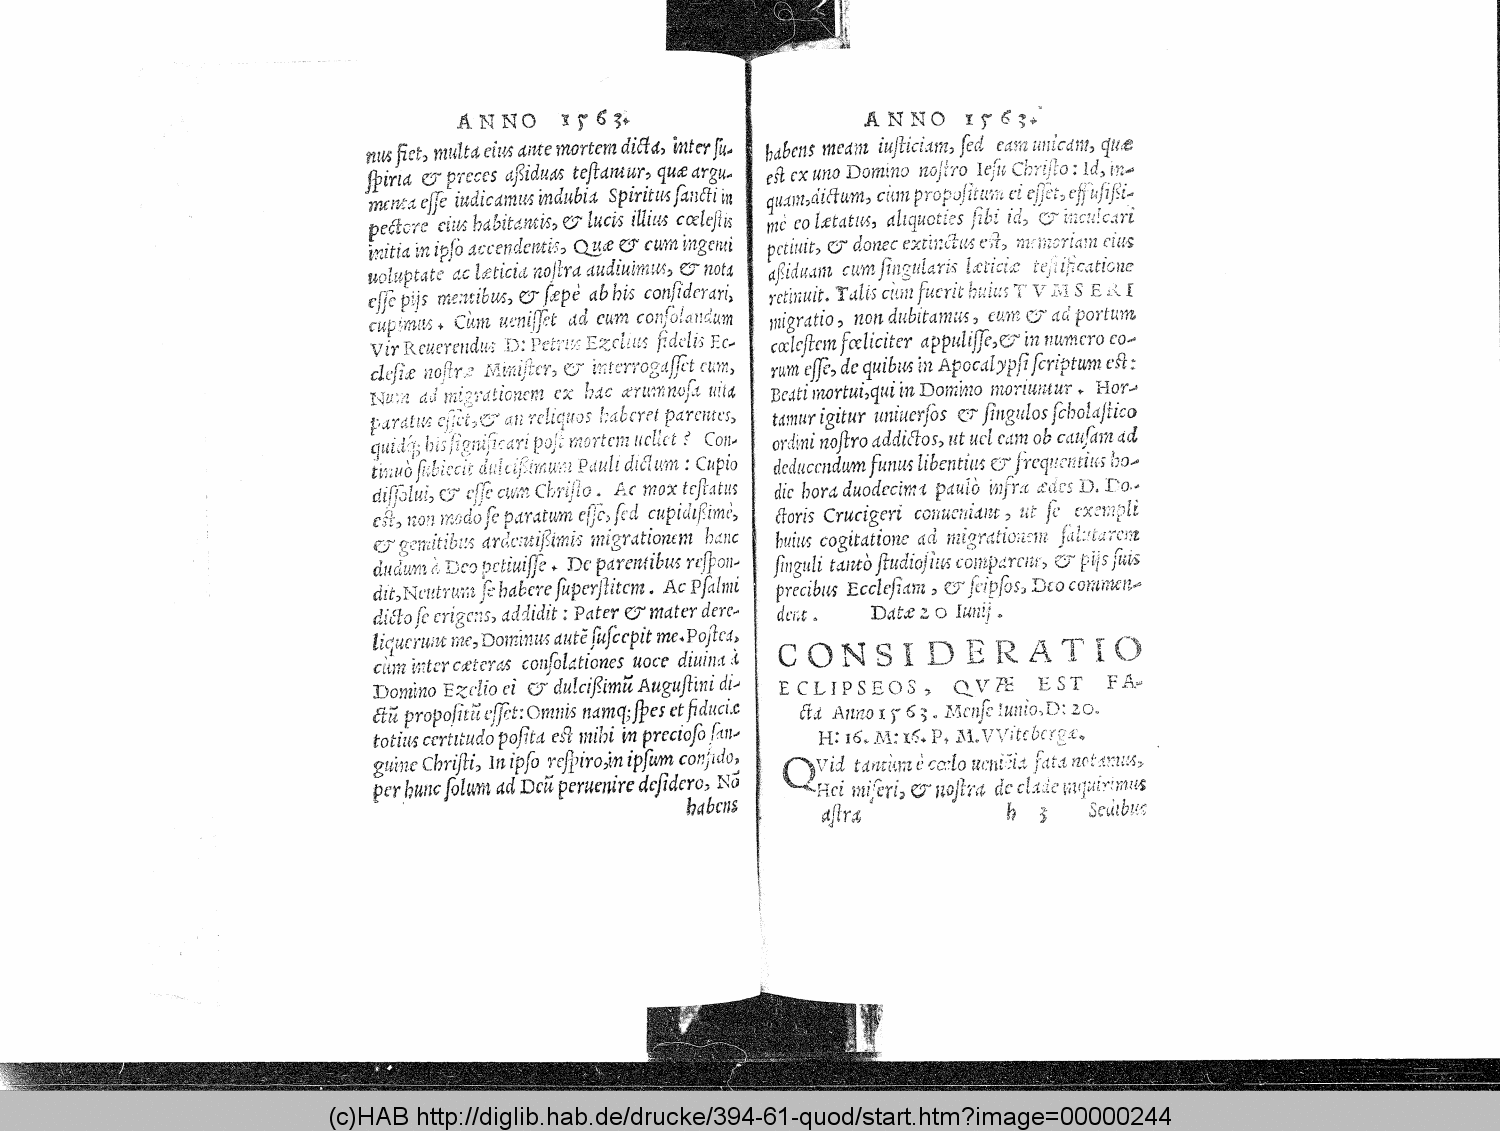 ANNO 1563.
nus fiet, multa eius ante mortem dicta, inter su-
spiria & preces aßiduas testantur, quæ argu-
menta esse iudicamus indubia Spiritus sancti in
pectore eius habitantis, & lucis illius cœlestis
initia in ipso accendentis, Quæ & cum ingenti
uoluptate ac læticia nostra audiuimus, & nota
esse pijs mentibus, & sæpè ab his considerari,
cupimus. Cùm uenisset ad eum consolandum
Vir Reuerendus D: Petrus Ezelius fidelis Ec-
clesiæ nostræ Minister, & interrogasset eum,
Num ad migrationem ex hac ærumnosa uita
paratus esset, & an reliquos haberet parentes,
quidq; his significari post mortem uellet? Con-
tinuò subiecit dulcißimum Pauli dictum: Cupio
dissolui, & esse cum Christo. Ac mox testatus
est, non modo se paratum esse, sed cupidißimè,
& gemitibus ardentißimis migrationem hanc
dudum à Deo petiuisse. De parentibus respon-
dit, Neutrum se habere superstitem. Ac Psalmi
dicto se erigens, addidit: Pater & mater dere-
liquerunt me, Dominus autē suscepit me. Postea,
cùm inter cæteras consolationes uoce diuina à
Domino Ezelio ei & dulcißimū Augustini di-
ctū propositū esset: Omnis namq; spes et fiduciæ
totius certitudo posita est mihi in precioso san-
guine Christi, In ipso respiro, in ipsum confido,
per hunc solum ad Deū peruenire desidero, Nō
habens
ANNO 1563.
habens meam iusticiam, sed eam unicam, quæ
est ex uno Domino nostro Iesu Christo: Id, in-
quam, dictum, cùm propositum ei esset, effusißi-
mè eo lætatus, aliquoties sibi id, & inculcari
petiuit, & donec extinctus est, memoriam eius
aßiduam cum singularis læticiæ testificatione
retinuit. Talis cùm fuerit huius TVMSERI
migratio, non dubitamus, eum & ad portum
cœlestem fœliciter appulisse, & in numero eo-
rum esse, de quibus in Apocalypsi scriptum est:
Beati mortui, qui in Domino moriuntur. Hor-
tamur igitur uniuersos & singulos scholastico
ordini nostro addictos, ut uel eam ob causam ad
deducendum funus libentius & frequentius ho-
die hora duodecima paulò infra ædes D. Do-
ctoris Crucigeri conueniant, ut se exempli
huius cogitatione ad migrationem salutarem
singuli tantò studiosius comparent, & pijs suis
precibus Ecclesiam, & seipsos, Deo commen-
dent. Datæ 20 Iunij.
CONSIDERATIO
ECLIPSEOS, QVÆ EST FA-
cta Anno 1563. Mense Iunio, D: 20.
H: 16. M: 16. P. M. VVitebergæ.
QVid tantùm è cœlo uenientia fata notamus,
Hei miseri, & nostra de clade inquirimus
astra
h 3 Sedibus
(c)HAB http://diglib.hab.de/drucke/394-61-quod/start.htm?image=00000244